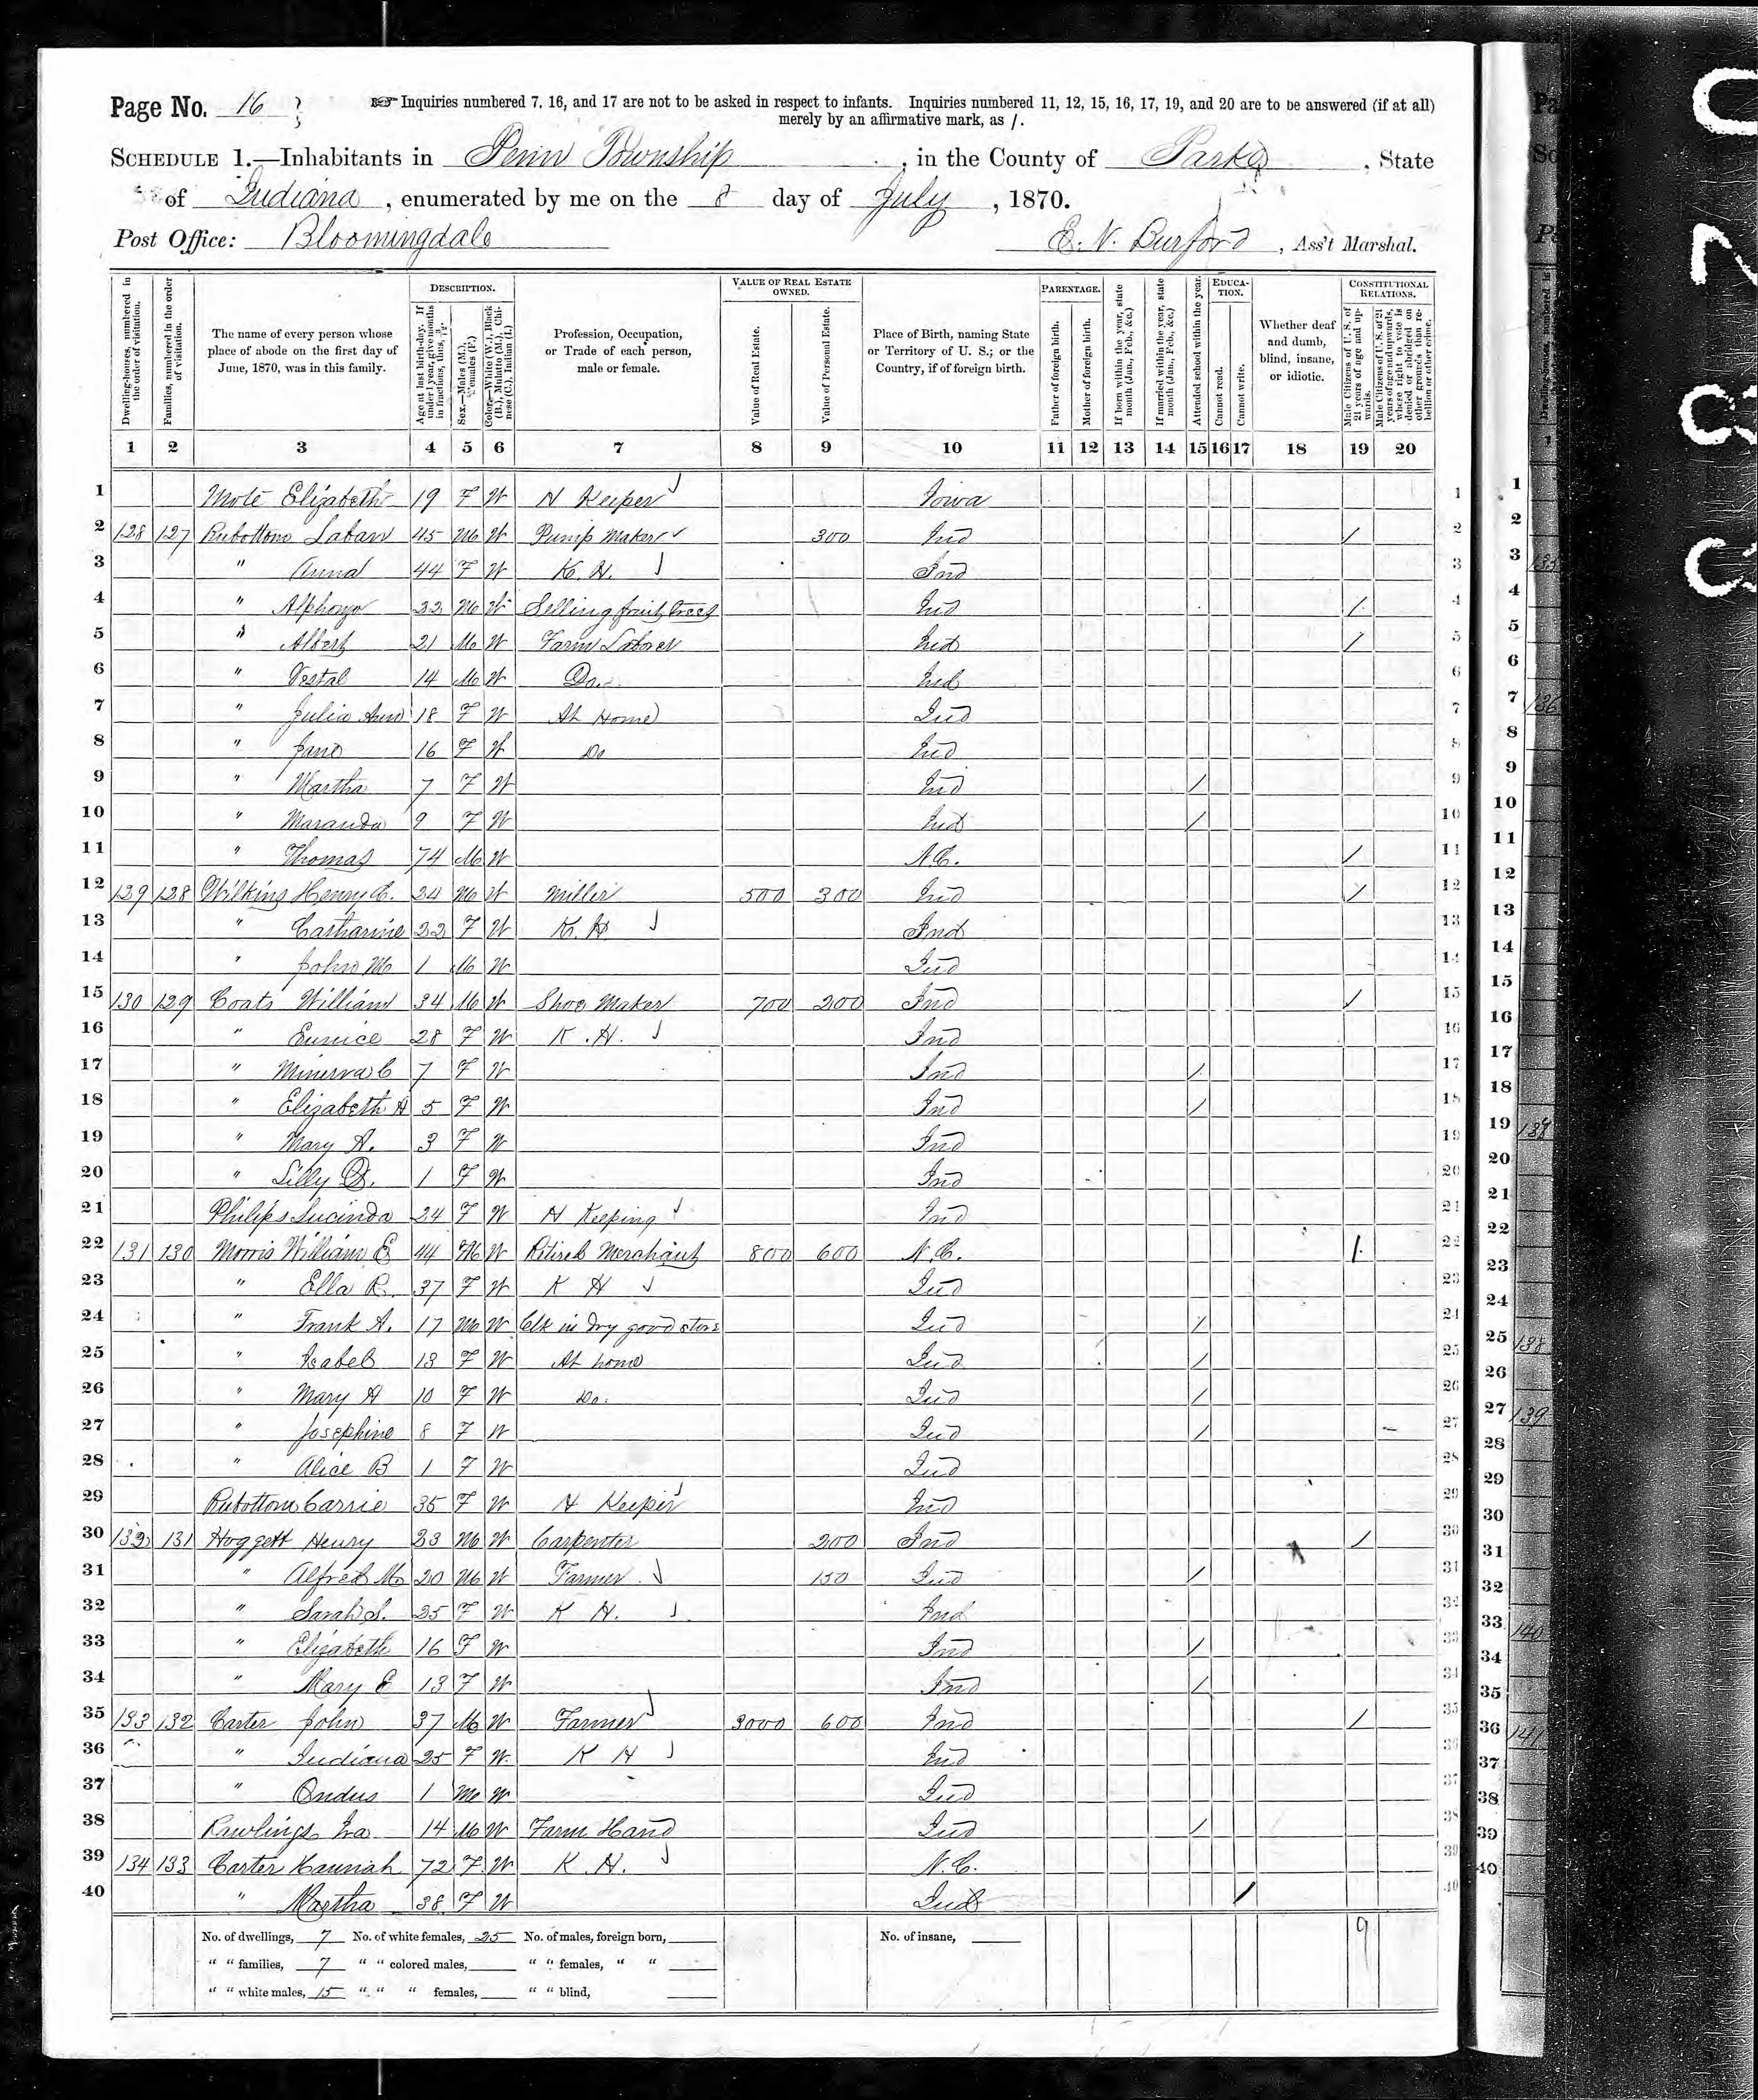 Page No. 16
Inquiries numbered 7, 16, and 17 are not to be asked in respect to infants. Inquiries numbered 11, 12, 15, 16, 17, 19, and 20 are to be answered (if at all)
merely by an affirmative mark, as /.
SCHEDULE 1.—Inhabitants in Penn Township, in the County of Parke, State
of Indiana, enumerated by me on the 8 day of July, 1870.
Post Office: Bloomingdale E. N. Burford, Ass't Marshal.
Dwelling-houses, numbered in the order of visitation.
Families, numbered in the order of visitation.
The name of every person whose place of abode on the first day of June, 1870, was in this family.
DESCRIPTION.
Age at last birth-day. If under 1 year, give months in fractions, thus, 3/12.
Sex.—Males (M.), Females (F.)
Color.—White (W.), Black (B.), Mulatto (M.), Chinese (C.), Indian (I.)
Profession, Occupation, or Trade of each person, male or female.
VALUE OF REAL ESTATE OWNED.
Value of Real Estate.
Value of Personal Estate.
Place of Birth, naming State or Territory of U. S.; or the Country, if of foreign birth.
PARENTAGE.
Father of foreign birth.
Mother of foreign birth.
If born within the year, state month (Jan., Feb., &c.)
If married within the year, state month (Jan., Feb., &c.)
Attended school within the year.
EDUCATION.
Cannot read.
Cannot write.
Whether deaf and dumb, blind, insane, or idiotic.
CONSTITUTIONAL RELATIONS.
Male Citizens of U. S. of 21 years of age and upwards.
Male Citizens of U. S. of 21 years of age and upwards, whose right to vote is denied or abridged on other grounds than rebellion or other crime.
1 2 3 4 5 6 7 8 9 10 11 12 13 14 15 16 17 18 19 20
1 Mote Elizabeth 19 F W H Keeper Iowa 1
2 128 127 Rubottom Laban 45 M W Pump Maker 300 Ind / 2
3 " Anna 44 F W K. H. Ind 3
4 " Alphonzo 22 M W Selling fruit trees Ind / 4
5 " Albert 21 M W Farm Laborer Ind / 5
6 " Vestal 14 M W Do. Ind 6
7 " Julia Ann 18 F W At Home Ind 7
8 " Jane 16 F W Do Ind 8
9 " Martha 7 F W Ind / 9
10 " Maranda 9 F W Ind / 10
11 " Thomas 74 M W N.C. / 11
12 129 128 Wilkins Henry C. 24 M W Miller 500 300 Ind / 12
13 " Catharine 22 F W K. H. Ind 13
14 " John M 1 M W Ind 14
15 130 129 Coats William 34 M W Shoe Maker 700 200 Ind / 15
16 " Eunice 28 F W K. H. Ind 16
17 " Minerva C 7 F W Ind / 17
18 " Elizabeth A 5 F W Ind / 18
19 " Mary A. 3 F W Ind 19
20 " Lilly D. 1 F W Ind 20
21 Philips Lucinda 24 F W H Keeping Ind 21
22 131 130 Morris William E 44 M W Retired Merchant 800 600 N.C. / 22
23 " Ella R. 37 F W K H Ind 23
24 " Frank A. 17 M W Clk in dry good store Ind / 24
25 " Isabel 13 F W At home Ind / 25
26 " Mary A 10 F W Do. Ind / 26
27 " Josephine 8 F W Ind / 27
28 " Alice B 1 F W Ind 28
29 Rubottom Carrie 35 F W H Keeper Ind 29
30 132 131 Hoggett Henry 23 M W Carpenter 200 Ind / 30
31 " Alfred M. 20 M W Farmer 150 Ind / 31
32 " Sarah S. 25 F W K H. Ind 32
33 " Elizabeth 16 F W Ind / 33
34 " Mary E 13 F W Ind / 34
35 133 132 Carter John 37 M W Farmer 3000 600 Ind / 35
36 " Indiana 25 F W K H Ind 36
37 " Ondus 1 M W Ind 37
38 Rawlings Ira 14 M W Farm Hand Ind / 38
39 134 133 Carter Hannah 72 F W K. H. N.C. 39
40 " Martha 38 F W Ind / 40
No. of dwellings, 7 No. of white females, 25 No. of males, foreign born, No. of insane, 9
" " families, 7 " " colored males, " " females, " "
" " white males, 15 " " " females, " " blind,